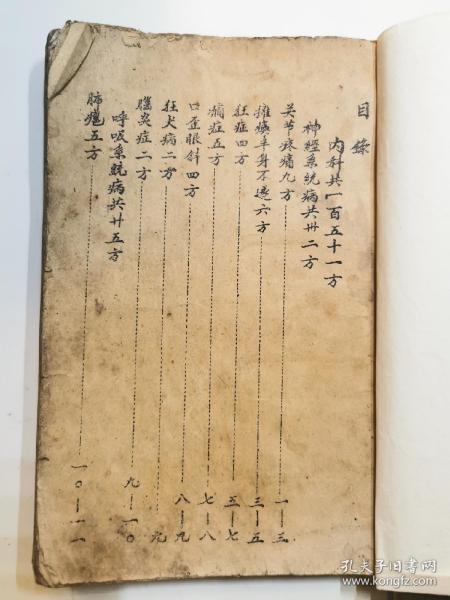 目錄
内科共一百五十一方
神經系統病共卅二方
头节疼痛九方 一——三
瘫痪半身不遂六方 三——五
狂症四方 五——七
痫症五方 七——八
口歪眼斜四方 八——九
狂犬病二方 九
腦炎症二方 九——一〇
呼吸系統病共廿五方
肺癰五方 一〇——一一
孔夫子旧书网